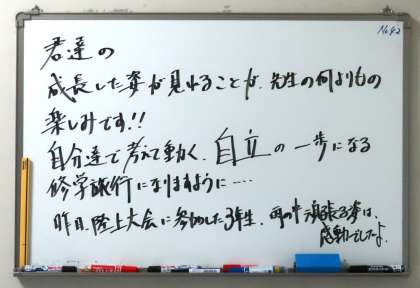 No.42
君達の
成長した姿が見れることが、先生の何よりもの
楽しみです!!
自分達で考えて動く、自立の一歩になる
修学旅行になりますように…
昨日、陸上大会に参加した3年生、雨の中頑張る姿は、
感動でしたよ。